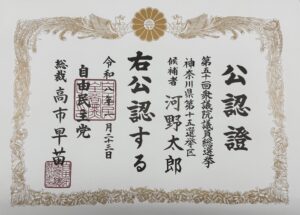 公認證
第五十一回衆議院議員総選挙
神奈川県第十五選挙区
候補者 河野太郎
右公認する
令和八年一月二十三日
自由民主党
総裁 高市早苗